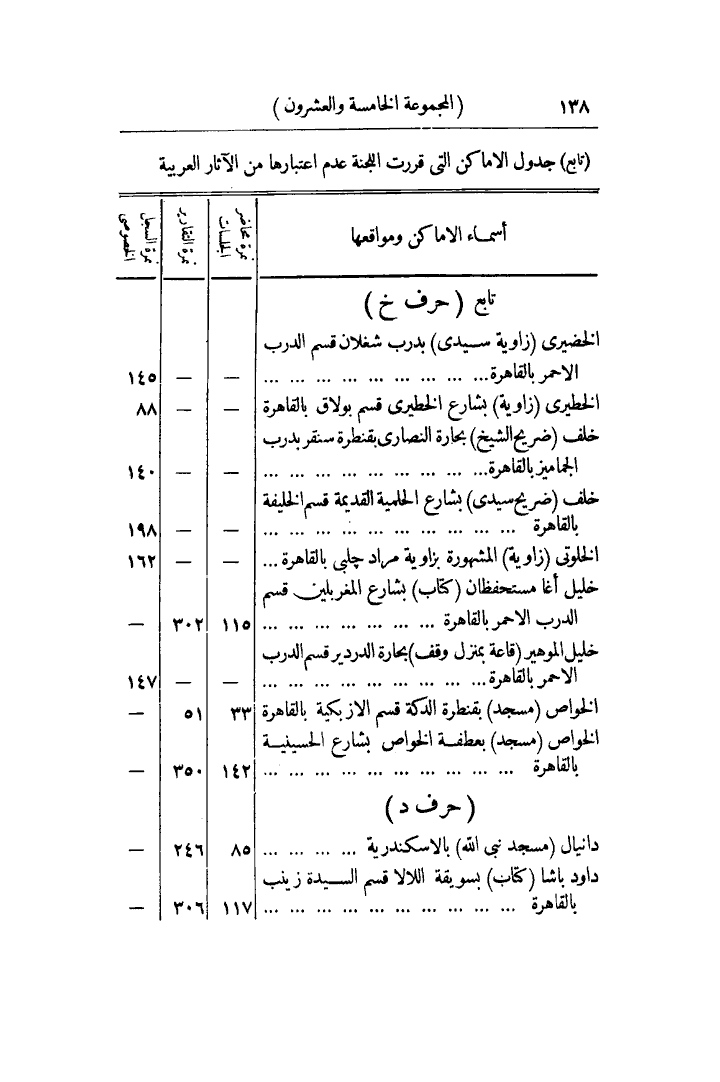 ١٣٨ (المجموعة الخامسة والعشرون)
(تابع) جدول الاماكن التى قررت اللجنة عدم اعتبارها من الآثار العربية
أسماء الاماكن ومواقعها | نمرة محاضر الجلسات | نمرة التقارير | نمرة السجل الخصوصى
تابع (حرف خ)
الخضيرى (زاوية سيدى) بدرب شغلان قسم الدرب
الاحمر بالقاهرة... ... ... ... ... ... ... ... ... — — ١٤٥
الخطيرى (زاوية) بشارع الخطيرى قسم بولاق بالقاهرة — — ٨٨
خلف (ضريح الشيخ) بحارة النصارى بقنطرة سنقر بدرب
الجماميز بالقاهرة... ... ... ... ... ... ... ... ... — — ١٤٠
خلف (ضريح سيدى) بشارع الحلمية القديمة قسم الخليفة
بالقاهرة ... ... ... ... ... ... ... ... ... ... — — ١٩٨
الخلوتى (زاوية) المشهورة بزاوية مراد چلبى بالقاهرة ... — — ١٦٢
خليل أغا مستحفظان (كتاب) بشارع المغربلين قسم
الدرب الاحمر بالقاهرة ... ... ... ... ... ... ... ١١٥ ٣٠٢ —
خليل الموهير (قاعة بمنزل وقف) بحارة الدردير قسم الدرب
الاحمر بالقاهرة... ... ... ... ... ... ... ... ... — — ١٤٧
الخواص (مسجد) بقنطرة الدكة قسم الازبكية بالقاهرة ٣٣ ٥١ —
الخواص (مسجد) بعطفة الخواص بشارع الحسينية
بالقاهرة ... ... ... ... ... ... ... ... ... ... ١٤٢ ٣٥٠ —
(حرف د)
دانيال (مسجد نبى الله) بالاسكندرية ... ... ... ... ٨٥ ٢٤٦ —
داود باشا (كتاب) بسويقة اللالا قسم السيدة زينب
بالقاهرة ... ... ... ... ... ... ... ... ... ... ١١٧ ٣٠٦ —